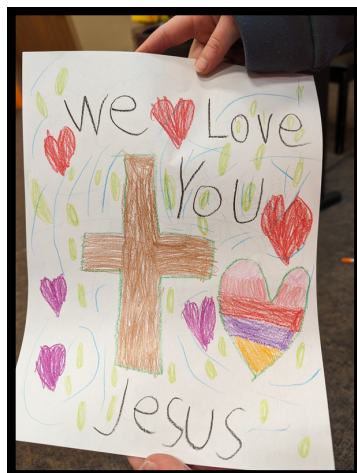 We Love
You
Jesus